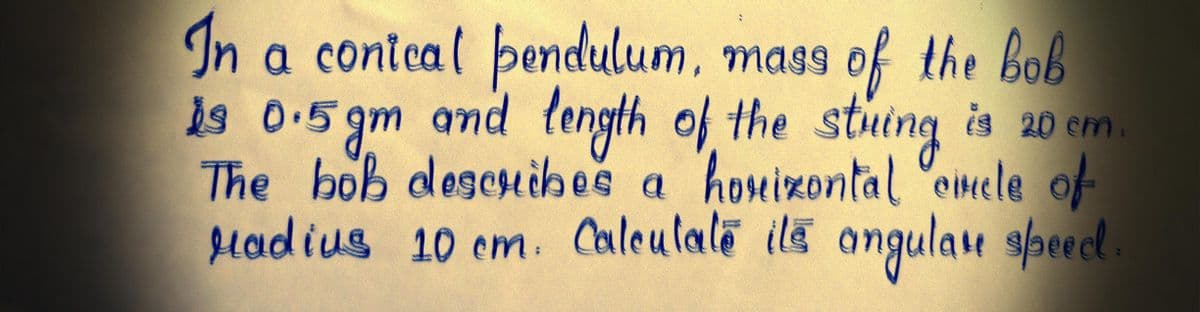 In a conical pendulum, mass of the bob
is 0.5 gm and length of the string is 20 cm.
The bob describes a horizontal circle of
radius 10 cm. Calculate its angular speed.